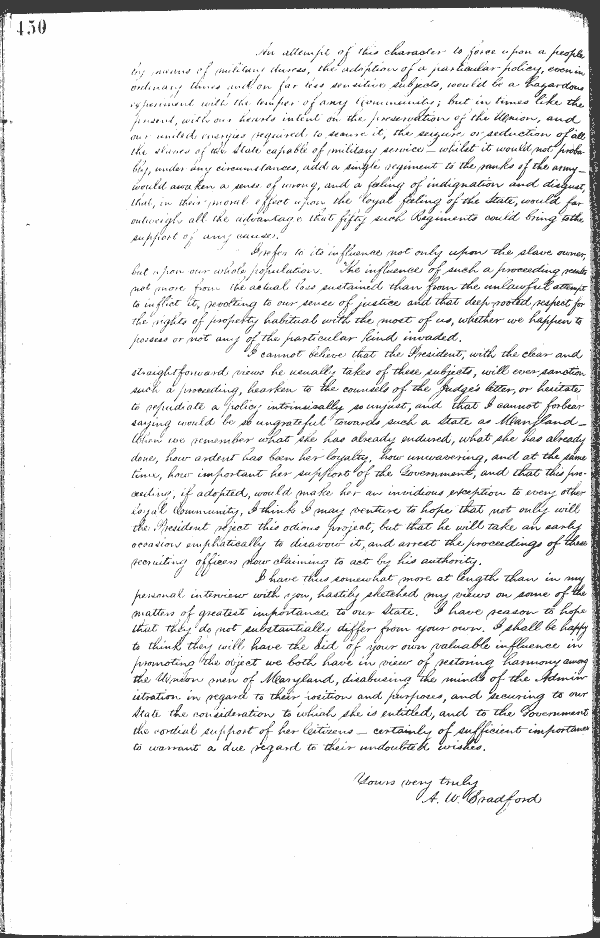 450
An attempt of this character to force upon a people
by means of military duress, the adoption of a particular policy, even in
ordinary times and on far less sensitive subjects, would be a hazardous
experiment with the temper of any Community; but in times like the
present, with our hearts intent on the preservation of the Union, and
our united energies required to secure it, the seizure or seduction of all
the slaves of the State capable of military service – whilst it would not proba-
bly, under any circumstances, add a single regiment to the ranks of the army –
would awaken a sense of wrong, and a feeling of indignation and disgust,
that, in their moral effect upon the loyal feeling of the State, would far
outweigh all the advantage that fifty such Regiments could bring to the
support of any cause.
I refer to its influence not only upon the slave owner,
but upon our whole population. The influence of such a proceeding results
not more from the actual loss sustained than from the unlawful attempt
to inflict it, revolting to our sense of justice and that deep-rooted respect for
the rights of property habitual with the most of us, whether we happen to
possess or not any of the particular kind invaded.
I cannot believe that the President, with the clear and
straightforward views he usually takes of these subjects, will ever sanction
such a proceeding, hearken to the counsels of the Judge's letter, or hesitate
to repudiate a policy intrinsically so unjust, and that I cannot forbear
saying would be so ungrateful towards such a State as Maryland –
When we remember what she has already endured, what she has already
done, how ardent has been her loyalty, how unwavering, and at the same
time, how important her support of the Government, and that this pro-
ceeding, if adopted, would make her an invidious exception to every other
loyal Community, I think I may venture to hope that not only will
the President reject this odious project, but that he will take an early
occasion emphatically to disavow it, and arrest the proceedings of these
recruiting officers now claiming to act by his authority.
I have thus somewhat more at length than in my
personal interview with you, hastily sketched my views on some of the
matters of greatest importance to our State. I have reason to hope
that they do not substantially differ from your own. I shall be happy
to think they will have the aid of your own valuable influence in
promoting the object we both have in view of restoring harmony among
the Union men of Maryland, disabusing the minds of the Admin-
istration in regard to their position and purposes, and securing to our
State the consideration to which she is entitled, and to the Government
the cordial support of her Citizens – certainly of sufficient importance
to warrant a due regard to their undoubted wishes.
Yours very truly
A. W. Bradford